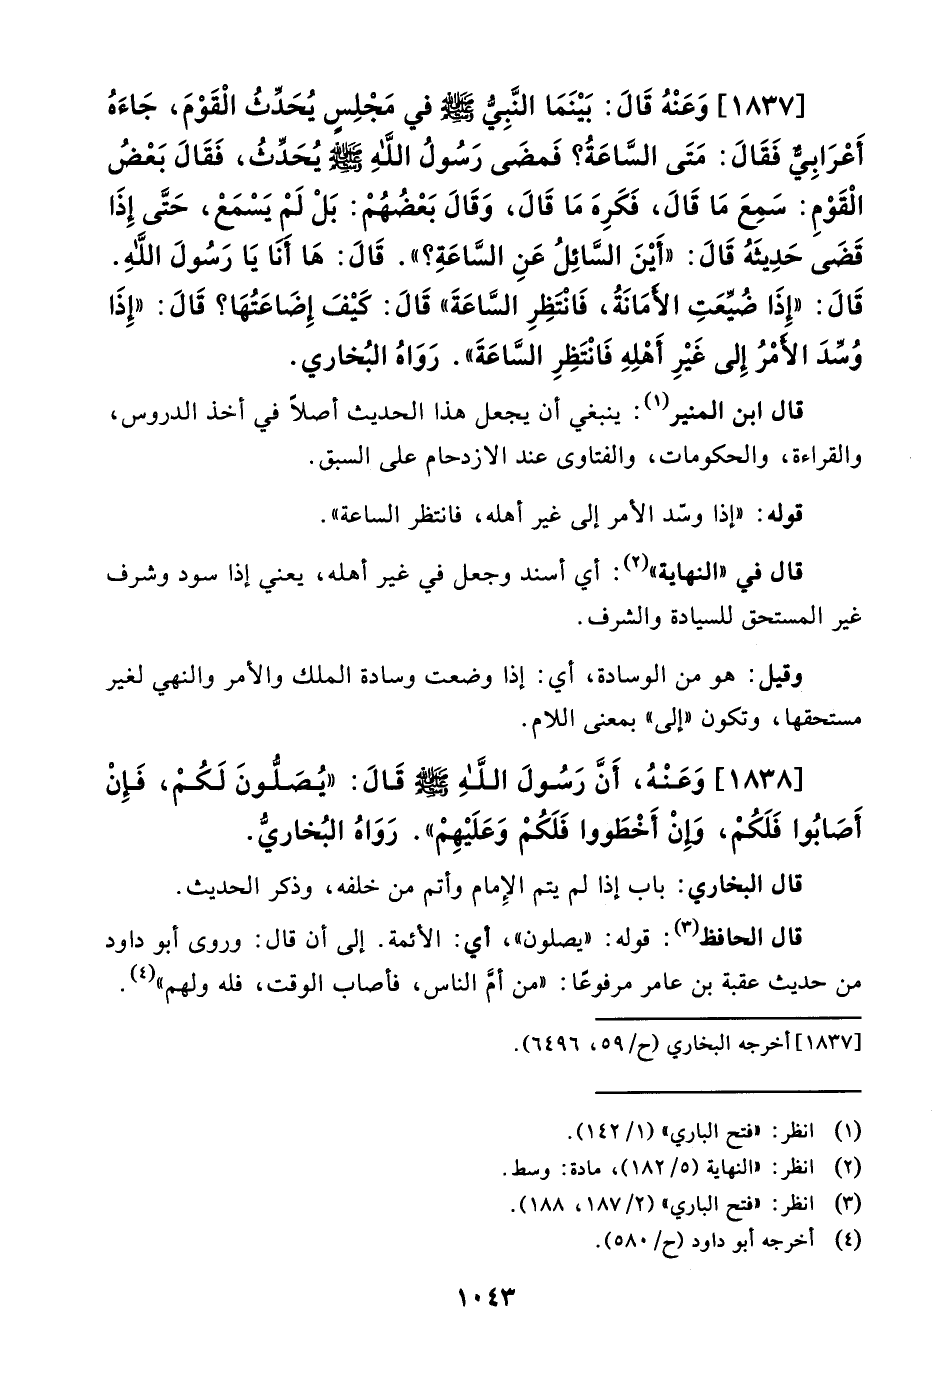 [١٨٣٧] وَعَنْهُ قَالَ: بَيْنَمَا النَّبِيُّ ﷺ في مَجْلِسٍ يُحَدِّثُ الْقَوْمَ، جَاءَهُ
أَعْرَابِيٌّ فَقَالَ: مَتَى السَّاعَةُ؟ فَمضَى رَسُولُ اللَّهِ ﷺ يُحَدِّثُ، فَقَالَ بَعْضُ
الْقَوْمِ: سَمِعَ مَا قَالَ، فَكَرِهَ مَا قَالَ، وَقَالَ بَعْضُهُمْ: بَلْ لَمْ يَسْمَعْ، حَتَّى إِذَا
قَضَى حَدِيثَهُ قَالَ: «أَيْنَ السَّائِلُ عَنِ السَّاعَةِ؟». قَالَ: هَا أَنَا يَا رَسُولَ اللَّهِ.
قَالَ: «إِذَا ضُيِّعَتِ الأَمَانَةُ، فَانْتَظِرِ السَّاعَةَ» قَالَ: كَيْفَ إِضَاعَتُهَا؟ قَالَ: «إِذَا
وُسِّدَ الأَمْرُ إِلى غَيْرِ أَهْلِهِ فَانْتَظِرِ السَّاعَةَ». رَوَاهُ البُخاري.
قال ابن المنير(١): ينبغي أن يجعل هذا الحديث أصلاً في أخذ الدروس،
والقراءة، والحكومات، والفتاوى عند الازدحام على السبق.
قوله: «إذا وسّد الأمر إلى غير أهله، فانتظر الساعة».
قال في «النهاية»(٢): أي أسند وجعل في غير أهله، يعني إذا سود وشرف
غير المستحق للسيادة والشرف.
وقيل: هو من الوسادة، أي: إذا وضعت وسادة الملك والأمر والنهي لغير
مستحقها، وتكون «إلى» بمعنى اللام.
[١٨٣٨] وَعَنْهُ، أَنَّ رَسُولَ اللَّهِ ﷺ قَالَ: «يُصَلُّونَ لَكُمْ، فَإِنْ
أَصَابُوا فَلَكُمْ، وَإِنْ أَخْطَووا فَلَكُمْ وَعَلَيْهِمْ». رَوَاهُ البُخاريُّ.
قال البخاري: باب إذا لم يتم الإمام وأتم من خلفه، وذكر الحديث.
قال الحافظ(٣): قوله: «يصلون»، أي: الأئمة. إلى أن قال: وروى أبو داود
من حديث عقبة بن عامر مرفوعًا: «من أمَّ الناس، فأصاب الوقت، فله ولهم»(٤).
[١٨٣٧] أخرجه البخاري (ح/٥٩، ٦٤٩٦).
(١) انظر: «فتح الباري» (١/١٤٢).
(٢) انظر: «النهاية (٥/١٨٢)، مادة: وسط.
(٣) انظر: «فتح الباري» (٢/١٨٧، ١٨٨).
(٤) أخرجه أبو داود (ح/٥٨٠).
١٠٤٣